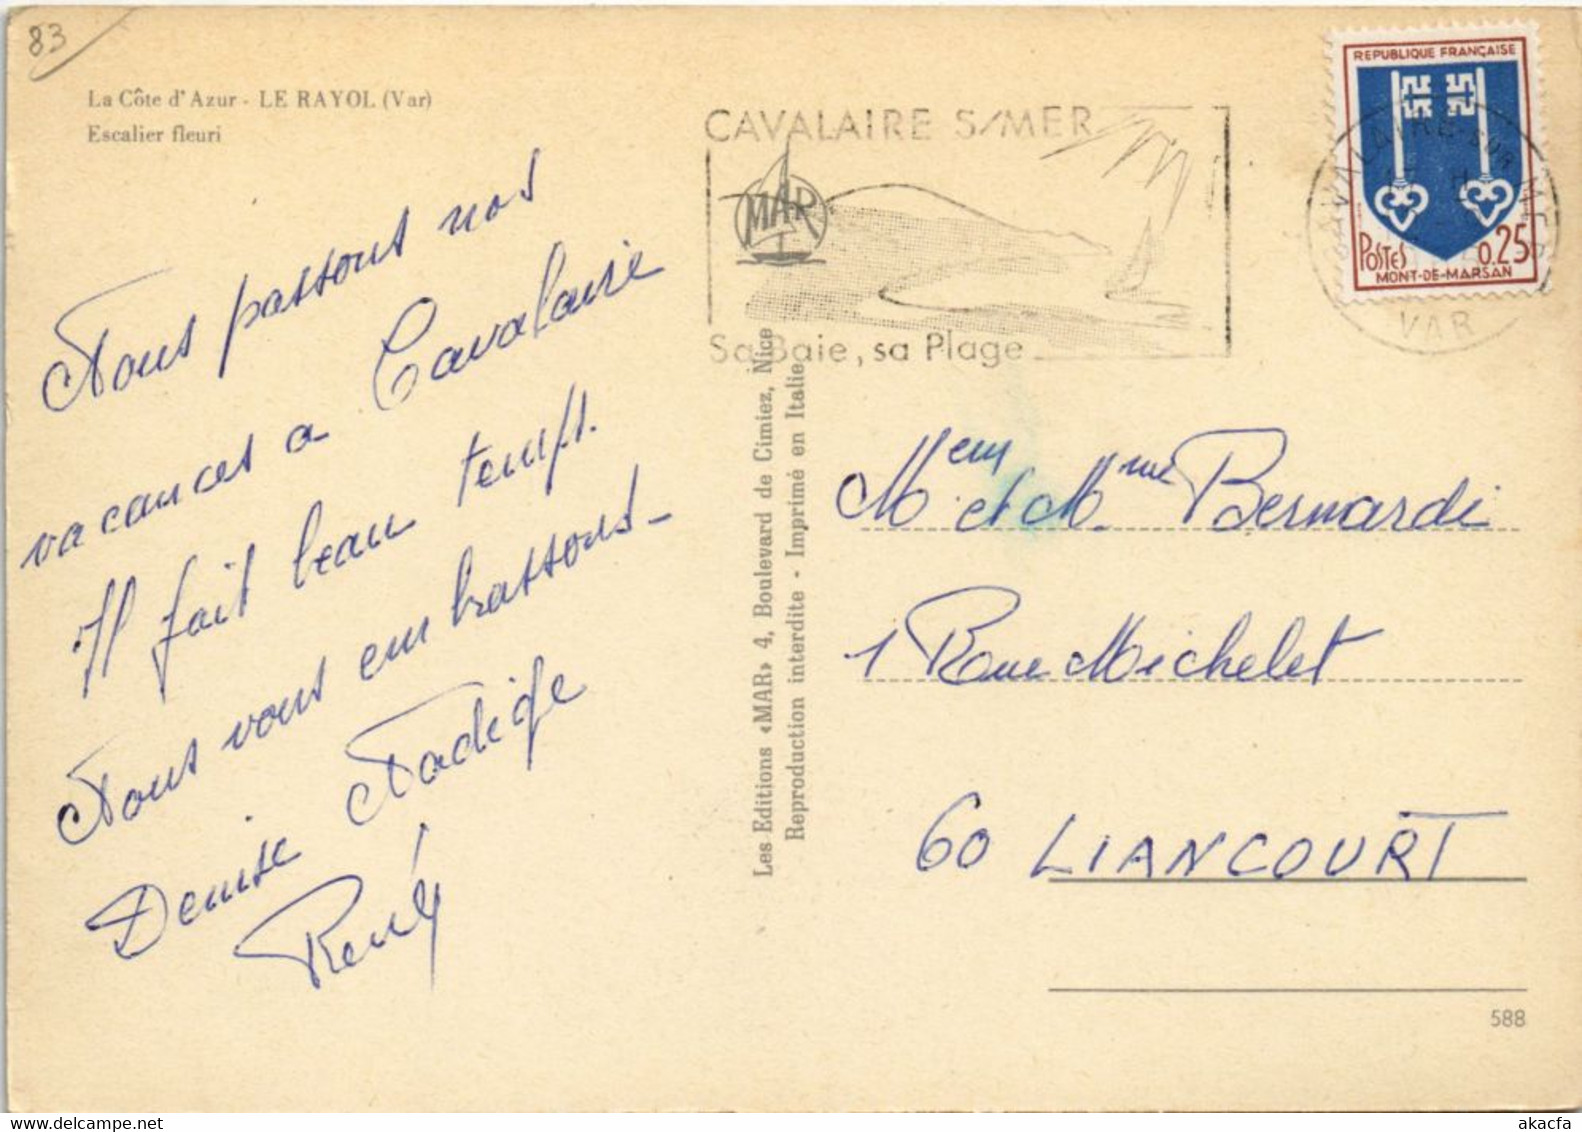 83
La Côte d'Azur - LE RAYOL (Var)
Escalier fleuri
Nous passons nos
vacances a Cavalaire
Il fait beau temps.
Nous vous embrassons -
Denise Nadige
René
CAVALAIRE S/MER
MAR
Sa Baie, sa Plage
REPUBLIQUE FRANÇAISE
POSTES 0.25
MONT-DE-MARSAN
CAVALAIRE-SUR-MER
VAR
Les Editions «MAR» 4, Boulevard de Cimiez, Nice
Reproduction interdite - Imprimé en Italie
et Mme Bernardi
1 Rue Michelet
60 LIANCOURT
588
akacfa
delcampe.net